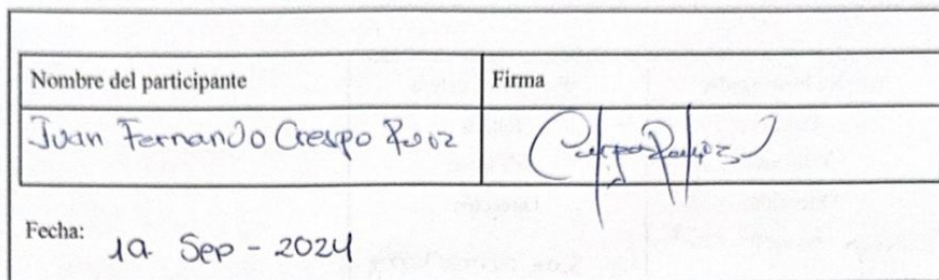 Nombre del participante Firma
Juan Fernando Crespo Ruiz
Fecha: 19 Sep - 2024